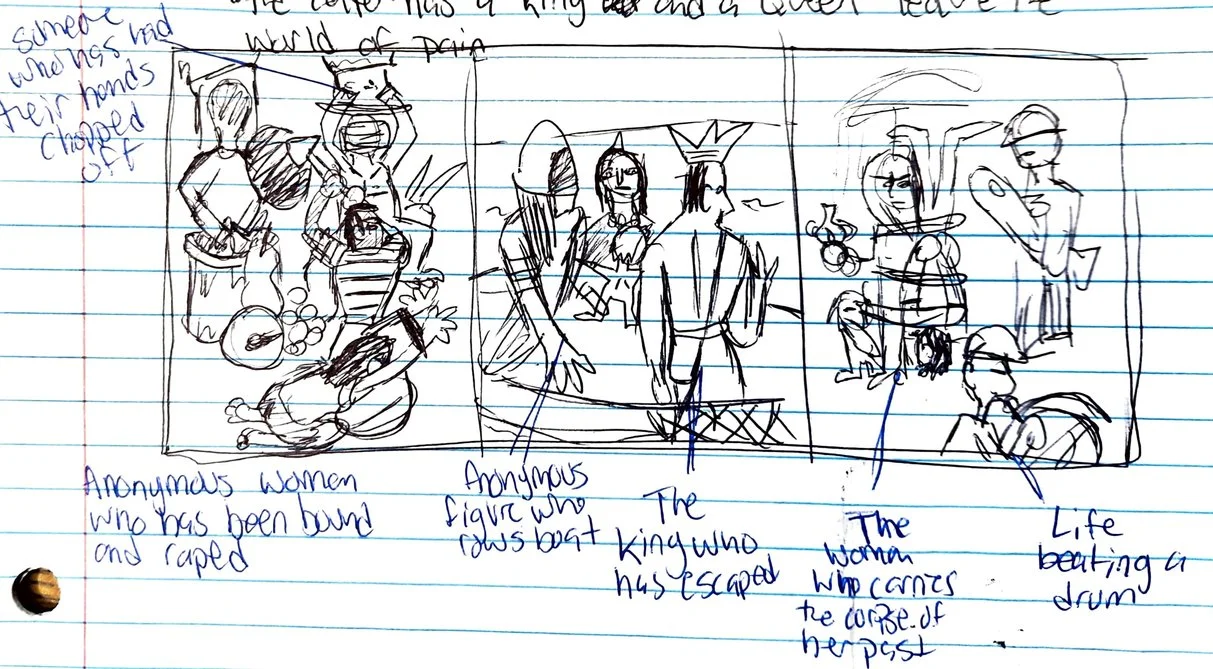 The center has a king and a Queen leave the
world of pain
someone
who has had
their hands
chopped
off
Anonymous woman
who has been bound
and raped
Anonymous
figure who
rows boat
The
king who
has escaped
The
woman
who carries
the corpse of
her past
Life
beating a
drum